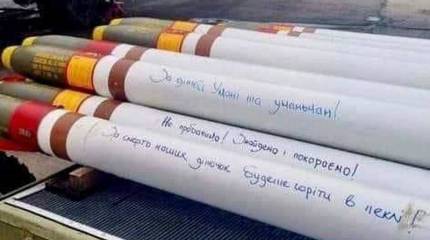 За дітей Умані та уманчан!
Не пробачимо! Знайдемо і покараємо!
За смерть наших діточок будете горіти в пеклі!